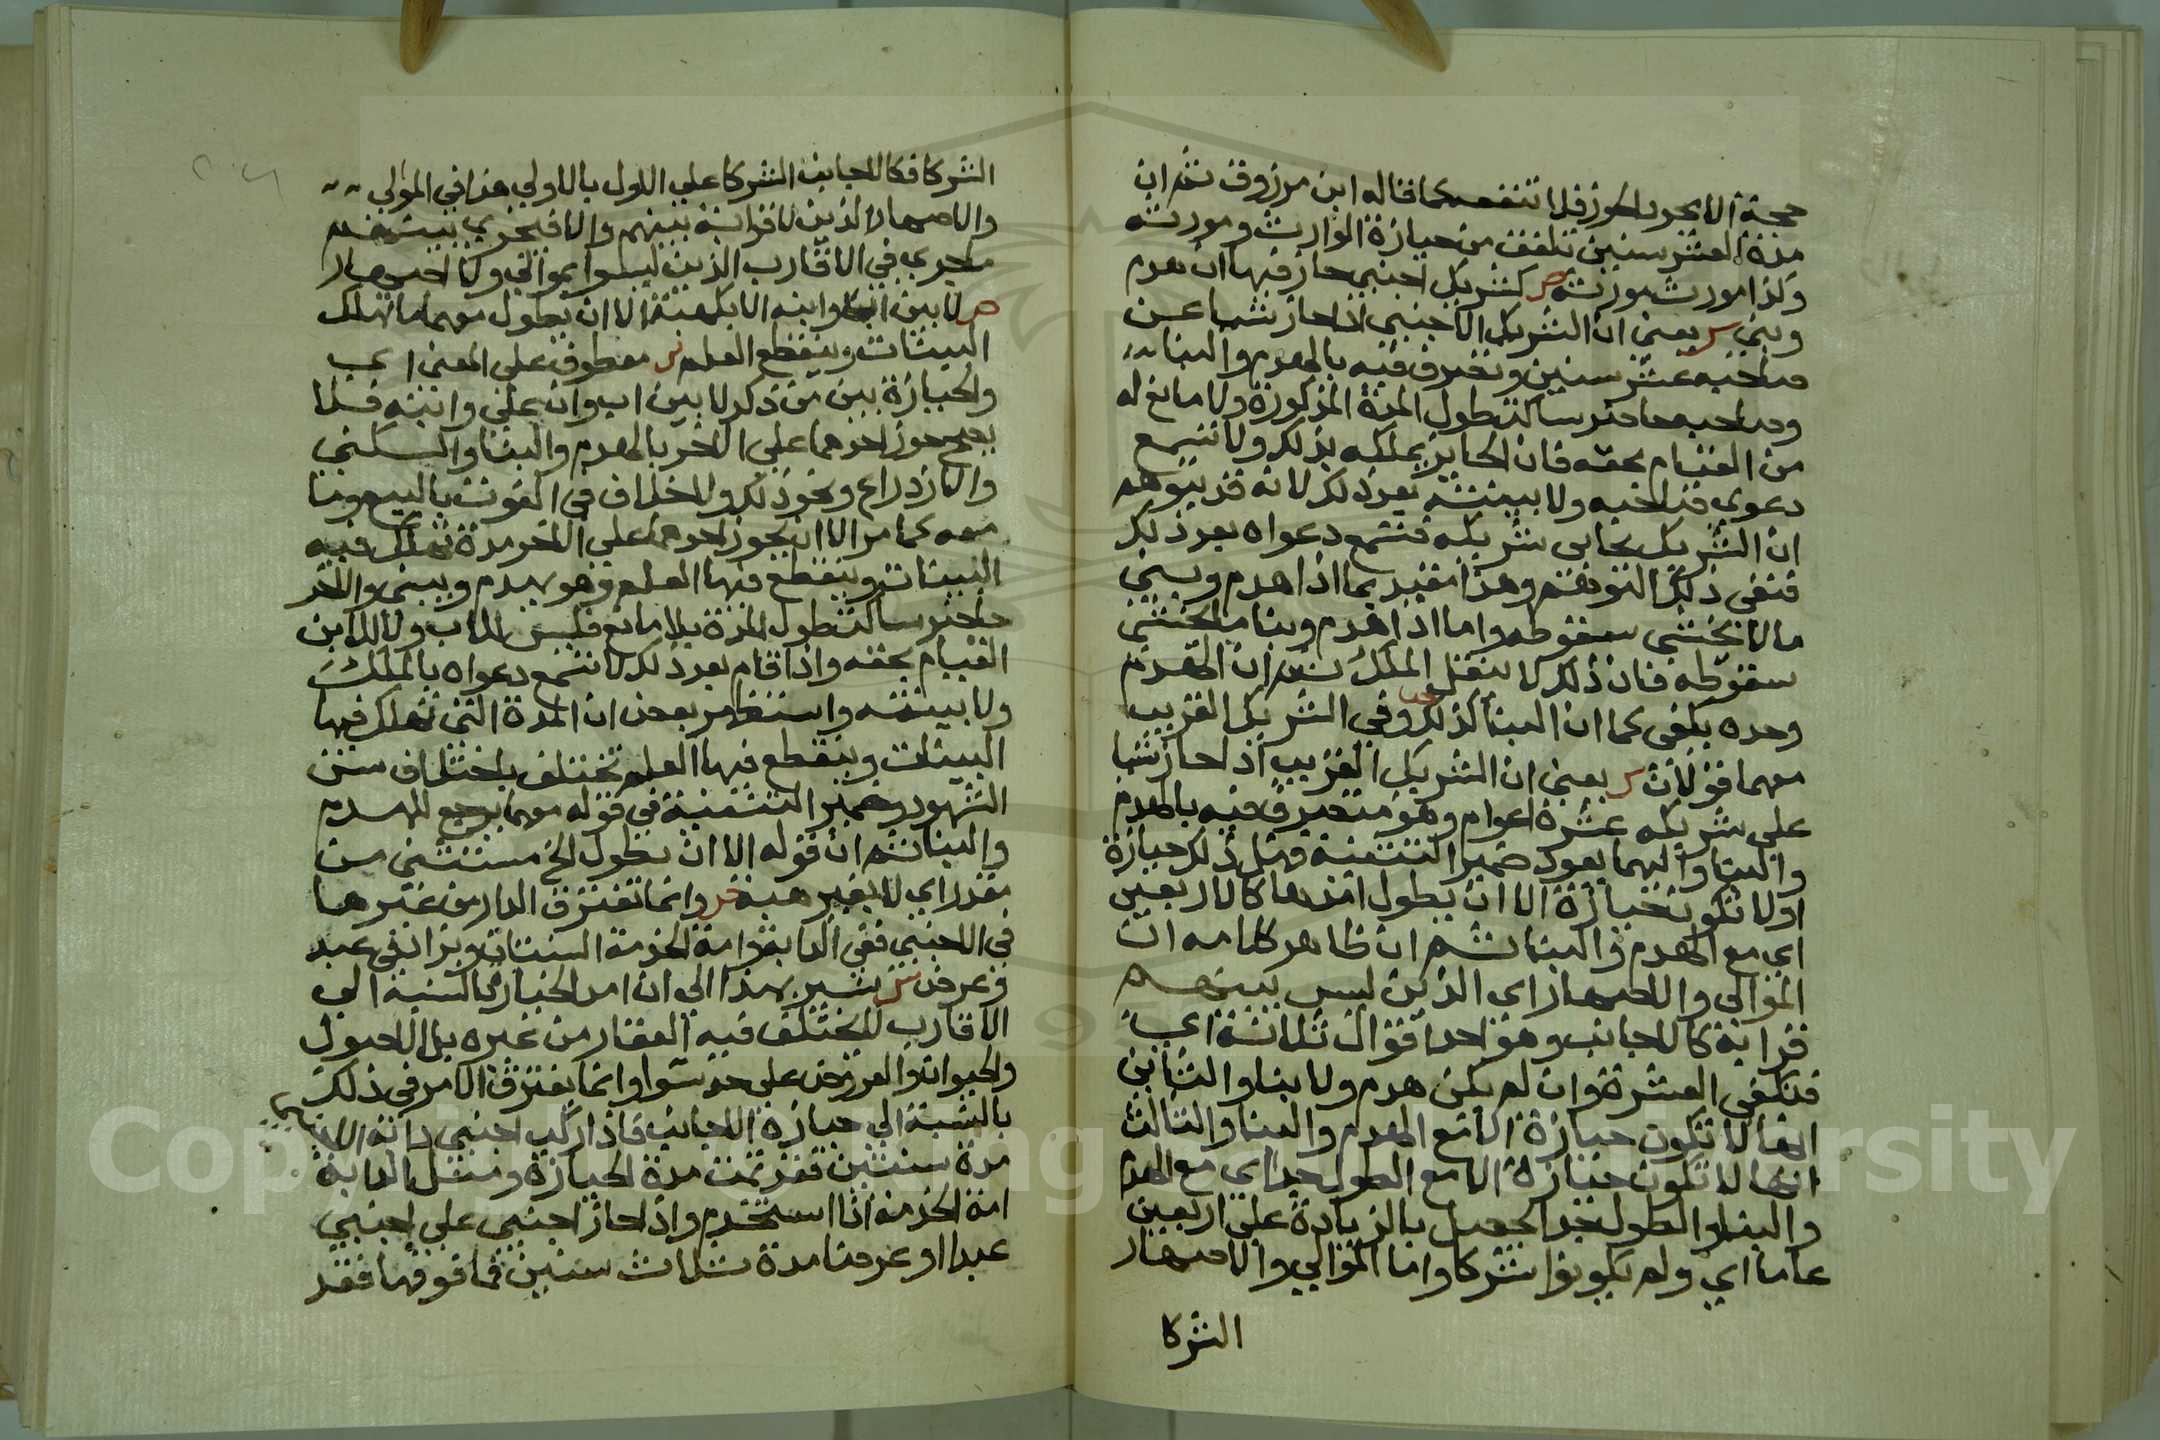 حجة الا بحر بالحوز فلا تنفعه كما قاله ابن مرزوق ثم ان
مدة العشر سنين تلفق من حيازة الوارث ومورثه
وكذا مورث مورثه ص كشريك اجنبي حاز فيها ان هدم
وبني ش يعني ان الشريك الاجنبي اذا حاز شيا عن
صاحبه عشر سنين وتصرف فيه بالهدم والبنا
وصاحبه حاضر ساكت بطول المدة المذكورة ولا مانع له
من القيام بحقه فان الحايز يملكه بذلك ولا تسمع
دعوي صاحبه ولا بينته بعد ذلك لانه قد يتوهم
ان الشريك يحابي شريكه فتسمع دعواه بعد ذلك
فنفي ذلك التوهم وهذا مقيد بما اذا هدم وبني
ما لا يخشي سقوطه واما اذا هدم وبنا ما يخشي
سقوطه فان ذلك لا ينقل الملك ثم ان الهدم
وحده يكفي كما ان البنا كذلك ص وفي الشريك القريب
معهما قولان ش يعني ان الشريك القريب اذا حاز شيا
علي شريكه عشرة اعوام وهو متصرف فيه بالهدم
والبنا واليهما يعود ضمير التثنية فهل ذلك حيازة
اولا تكون حيازة الا ان يطول امدها كالاربعين
اي مع الهدم والبنا ثم ان ظاهر كلامه ان
الموالي والاصهار اي الذين ليس بينهم
قرابة كالاجانب وهو احد اقوال ثلاثة اي
فتكفي العشرة وان لم يكن هدم ولا بنا والثاني
انها لا تكون حيازة الا مع الهدم والبنا والثالث
انها لا تكون حيازة الا مع الطول جدا اي مع الهدم
والبنا والطول جدا يحصل بالزيادة علي اربعين
عاما اي ولم يكونوا شركا واما الموالي والاصهار
الشركا
الشركا فكالاجانب الشركا علي الاول بالاولي هذا في الموالي
والاصهار الذين لا قرابة بينهم والا فيجري بينهم
ما جري في الاقارب الذين ليسوا بموالي ولا اصهار
ص لا بين اب وابنه الا بكهبة الا ان يطول معهما ما تهلك
البينات وينقطع العلم ش معطوف علي المعني اي
والحيازة بين من ذكر لا بين اب وان علي وابنه فلا
يصح حوز احدهما علي الاخر بالهدم والبنا والسكني
والازدراع ونحو ذلك ولا خلاف في الفوت بالبيع وما
معه كما مر الا ان يحوز احدهما علي الاخر مدة تهلك فيه
البينات وينقطع فيها العلم وهو يهدم ويبني والاخر
حاضر ساكت طول المدة بلا مانع فليس للاب ولا للابن
القيام بحقه واذا قام بعد ذلك لا تسمع دعواه بالملك
ولا بينته واستظهر بعض ان المدة التي تهلك فيها
البينات وينقطع فيها العلم تختلف باختلاف سن
الشهود وضمير التثنية في قوله معهما يرجع للهدم
والبنا ثم ان قوله الا ان يطول الخ مستثني من
مقدر اي لا بغير هبة ص وانما تفترق الدار من غيرها
في الاجنبي ففي الدابة وامة الخدمة السنتان ويزاد في عبد
وعرض ش يشير بهذا الي ان امد الحيازة بالنسبة الي
الاقارب لا يختلف فيه العقار من غيره بل الاصول
والحيوان والعروض علي حد سوا وانما يفترق الامر في ذلك
بالنسبة الي حيازة الاجانب فاذا ركب اجنبي دابة الاجنبي
مدة سنتين فقد تمت مدة الحيازة ومثل الدابة
امة الخدمة اذا استخدم واذا حاز اجنبي علي اجنبي
عبدا او عرضا مدة ثلاث سنين فما فوقها فقد